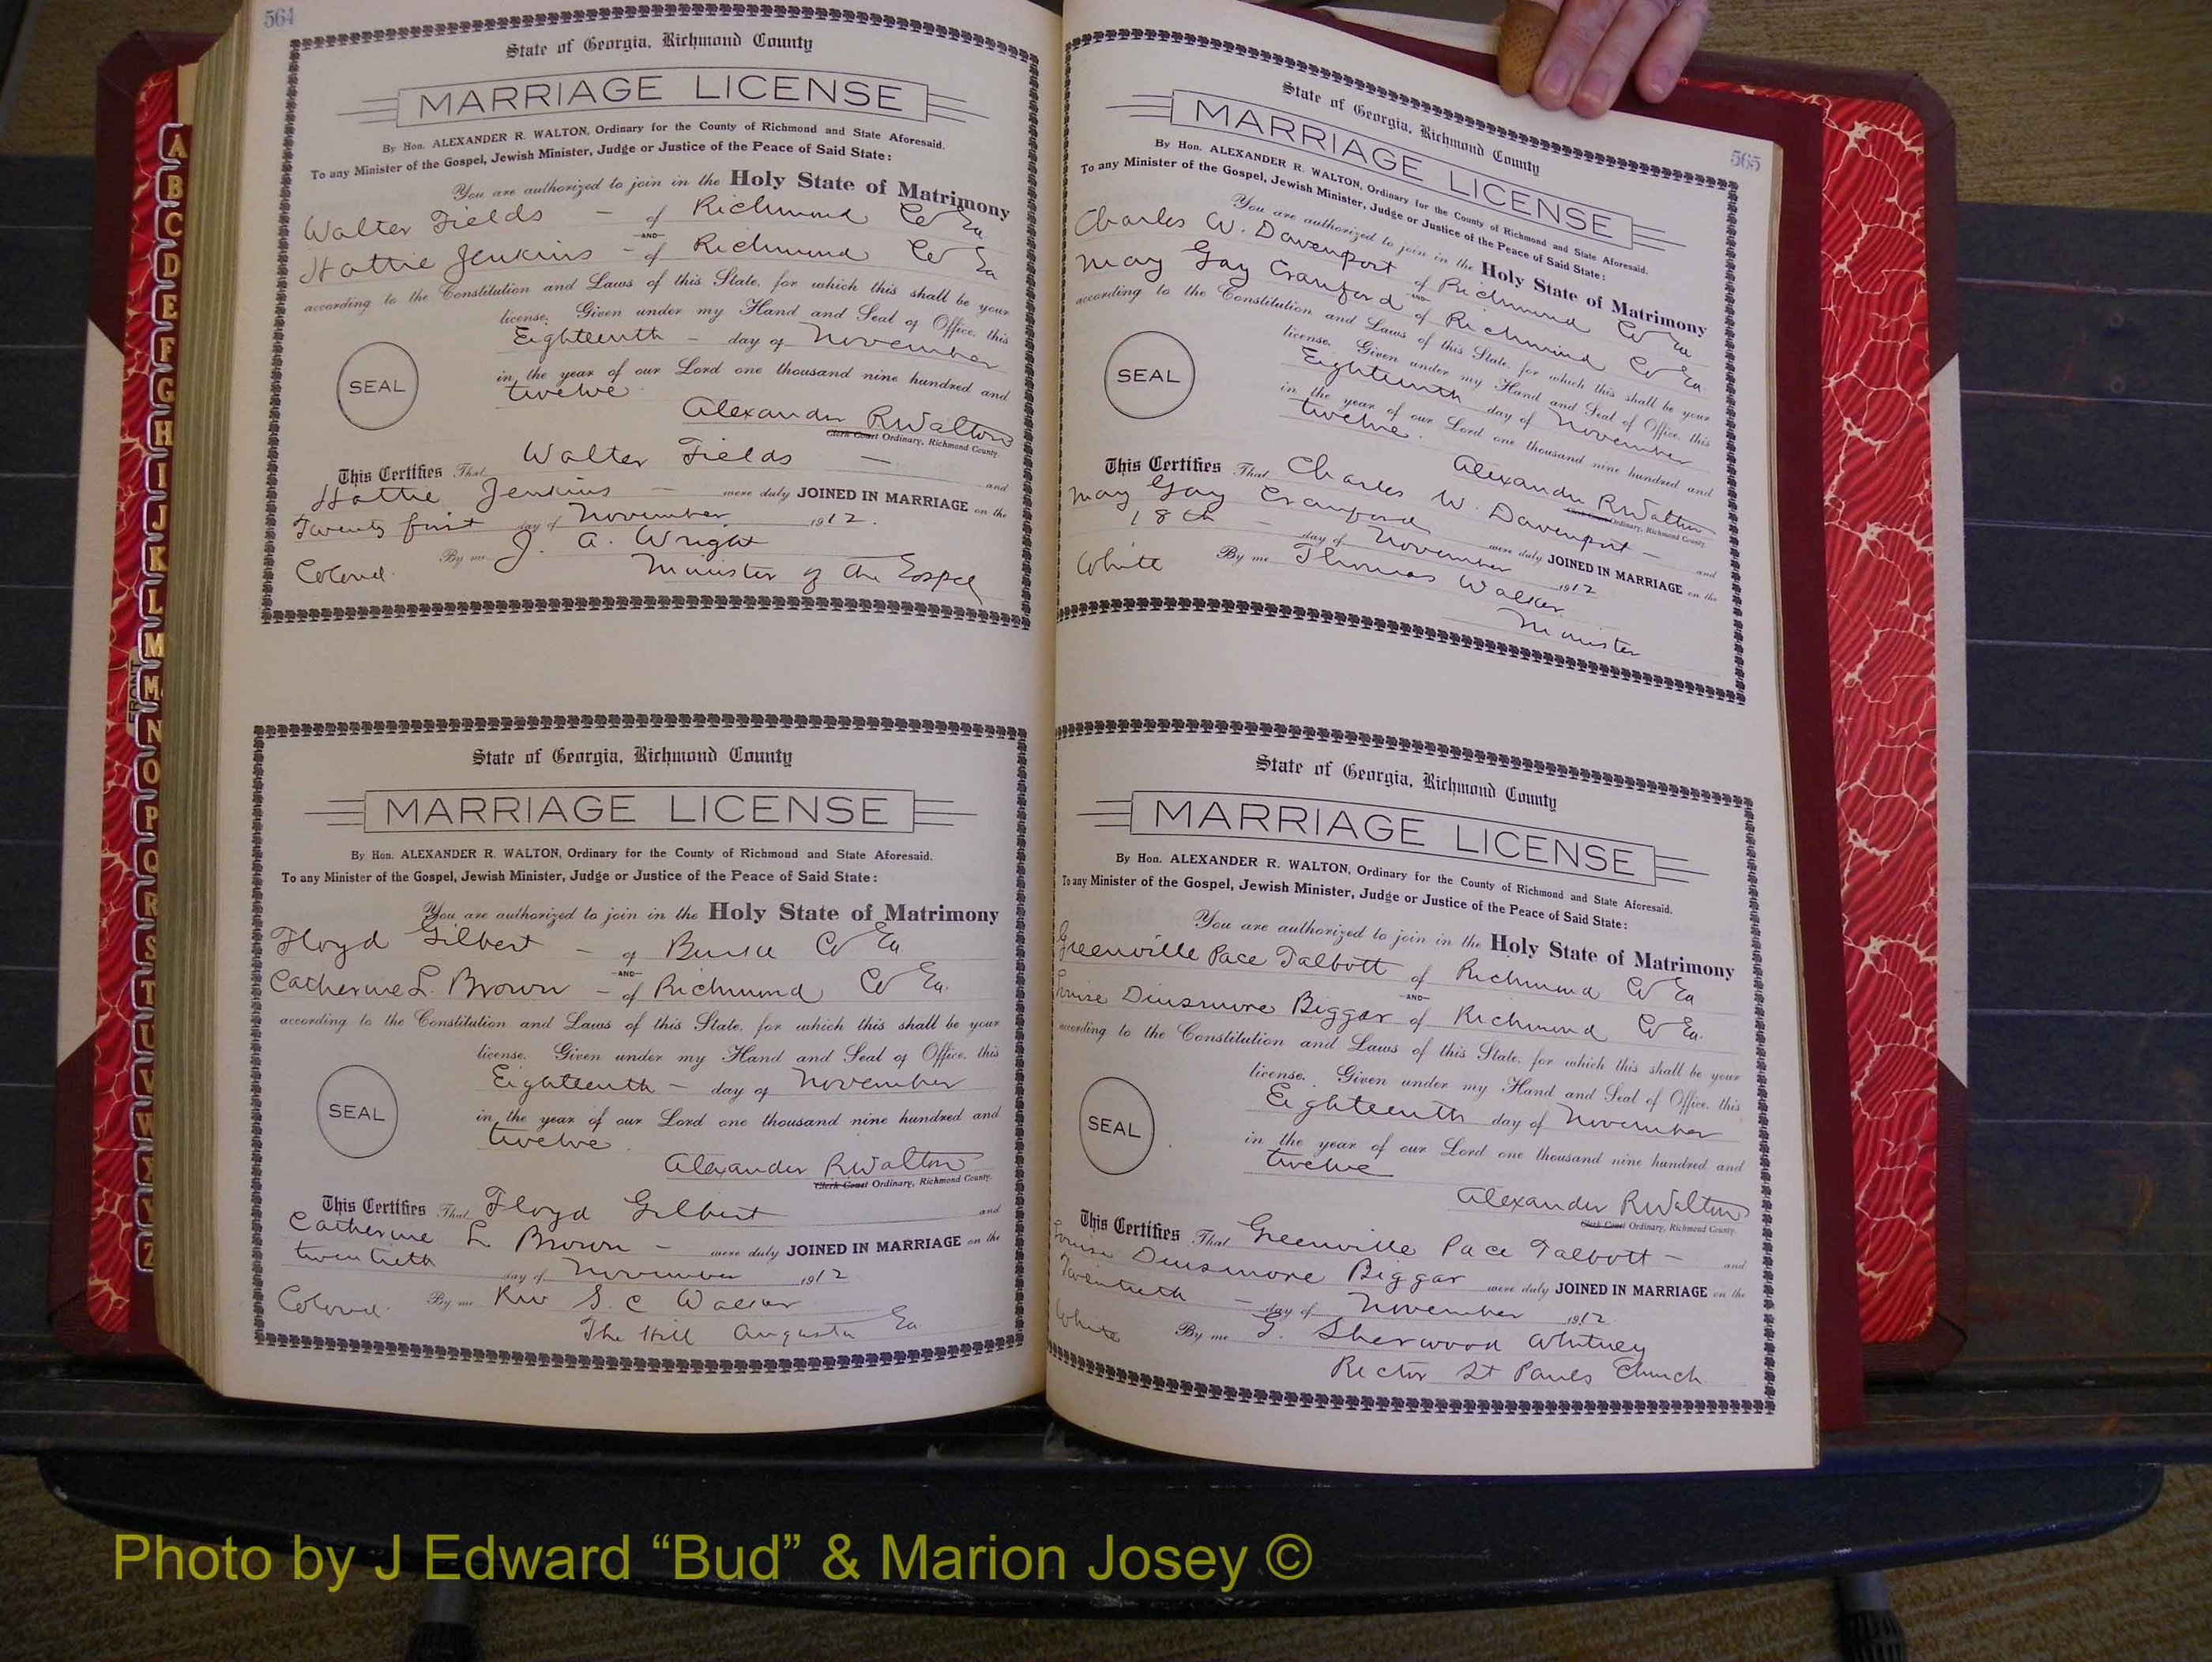 564
State of Georgia, Richmond County
MARRIAGE LICENSE
By Hon. ALEXANDER R. WALTON, Ordinary for the County of Richmond and State Aforesaid.
To any Minister of the Gospel, Jewish Minister, Judge or Justice of the Peace of Said State:
You are authorized to join in the Holy State of Matrimony
Walter Fields - of Richmond Co Ga
AND
Hattie Jenkins - of Richmond Co Ga
according to the Constitution and Laws of this State, for which this shall be your
license. Given under my Hand and Seal of Office, this
Eighteenth - day of November
SEAL
in the year of our Lord one thousand nine hundred and
twelve.
Alexander R Walton
Clerk Court Ordinary, Richmond County.
This Certifies That Walter Fields - and
Hattie Jenkins - were duly JOINED IN MARRIAGE on the
Twenty first day of November 1912.
By me J. A. Wright
Colored. Minister of the Gospel
State of Georgia, Richmond County
MARRIAGE LICENSE
By Hon. ALEXANDER R. WALTON, Ordinary for the County of Richmond and State Aforesaid.
To any Minister of the Gospel, Jewish Minister, Judge or Justice of the Peace of Said State:
You are authorized to join in the Holy State of Matrimony
Floyd Gilbert - of Burke Co Ga.
AND
Catherine L. Brown - of Richmond Co Ga.
according to the Constitution and Laws of this State, for which this shall be your
license. Given under my Hand and Seal of Office, this
Eighteenth - day of November
SEAL
in the year of our Lord one thousand nine hundred and
twelve.
Alexander R Walton
Clerk Court Ordinary, Richmond County.
This Certifies That Floyd Gilbert and
Catherine L Brown - were duly JOINED IN MARRIAGE on the
twentieth day of November 1912
Colored. By me Rev S. C Walker
The Hill Augusta Ga
565
State of Georgia, Richmond County
MARRIAGE LICENSE
By Hon. ALEXANDER R. WALTON, Ordinary for the County of Richmond and State Aforesaid.
To any Minister of the Gospel, Jewish Minister, Judge or Justice of the Peace of Said State:
You are authorized to join in the Holy State of Matrimony
Charles W. Davenport of Richmond Co Ga
AND
May Gay Cranford of Richmond Co Ga.
according to the Constitution and Laws of this State, for which this shall be your
license. Given under my Hand and Seal of Office, this
Eighteenth day of November
SEAL
in the year of our Lord one thousand nine hundred and
twelve.
Alexander R Walton
Clerk Court Ordinary, Richmond County
This Certifies That Charles W. Davenport - and
May Gay Cranford were duly JOINED IN MARRIAGE on the
18th - day of November 1912
White By me Thomas Walker
Minister
State of Georgia, Richmond County
MARRIAGE LICENSE
By Hon. ALEXANDER R. WALTON, Ordinary for the County of Richmond and State Aforesaid.
To any Minister of the Gospel, Jewish Minister, Judge or Justice of the Peace of Said State:
You are authorized to join in the Holy State of Matrimony
Greenville Pace Talbott of Richmond Co Ga
AND
Louise Dinsmore Biggar of Richmond Co Ga.
according to the Constitution and Laws of this State, for which this shall be your
license. Given under my Hand and Seal of Office, this
Eighteenth day of November
SEAL
in the year of our Lord one thousand nine hundred and
twelve
Alexander R Walton
Clerk Court Ordinary, Richmond County.
This Certifies That Greenville Pace Talbott - and
Louise Dinsmore Biggar were duly JOINED IN MARRIAGE on the
Twentieth - day of November 1912.
White By me G. Sherwood Whitney
Rector St Pauls Church
A
B
C
D
E
F
G
H
I
J
K
L
M
M
N
O
P
Q
R
S
T
U
V
W
X
Y
Z
FRONT
Photo by J Edward “Bud” & Marion Josey ©